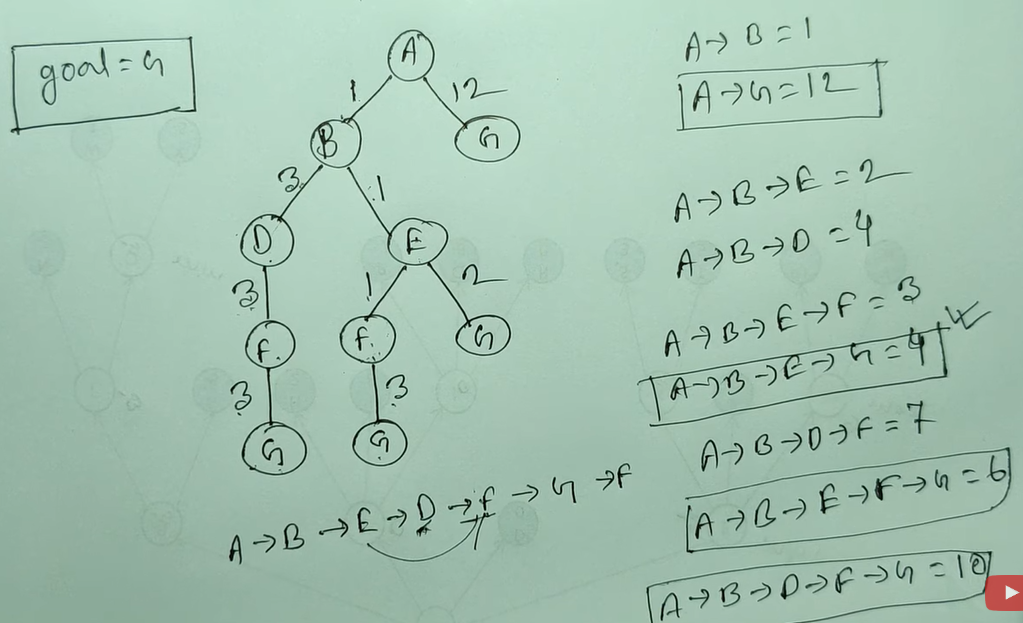 goal = G
A
1
12
B
G
3
1
D
E
3
1
2
F
F
G
3
3
G
G
A → B → E → D → F → G → F
A → B = 1
A → G = 12
A → B → E = 2
A → B → D = 4
A → B → E → F = 3
A → B → E → G = 4
A → B → D → F = 7
A → B → E → F → G = 6
A → B → D → F → G = 10